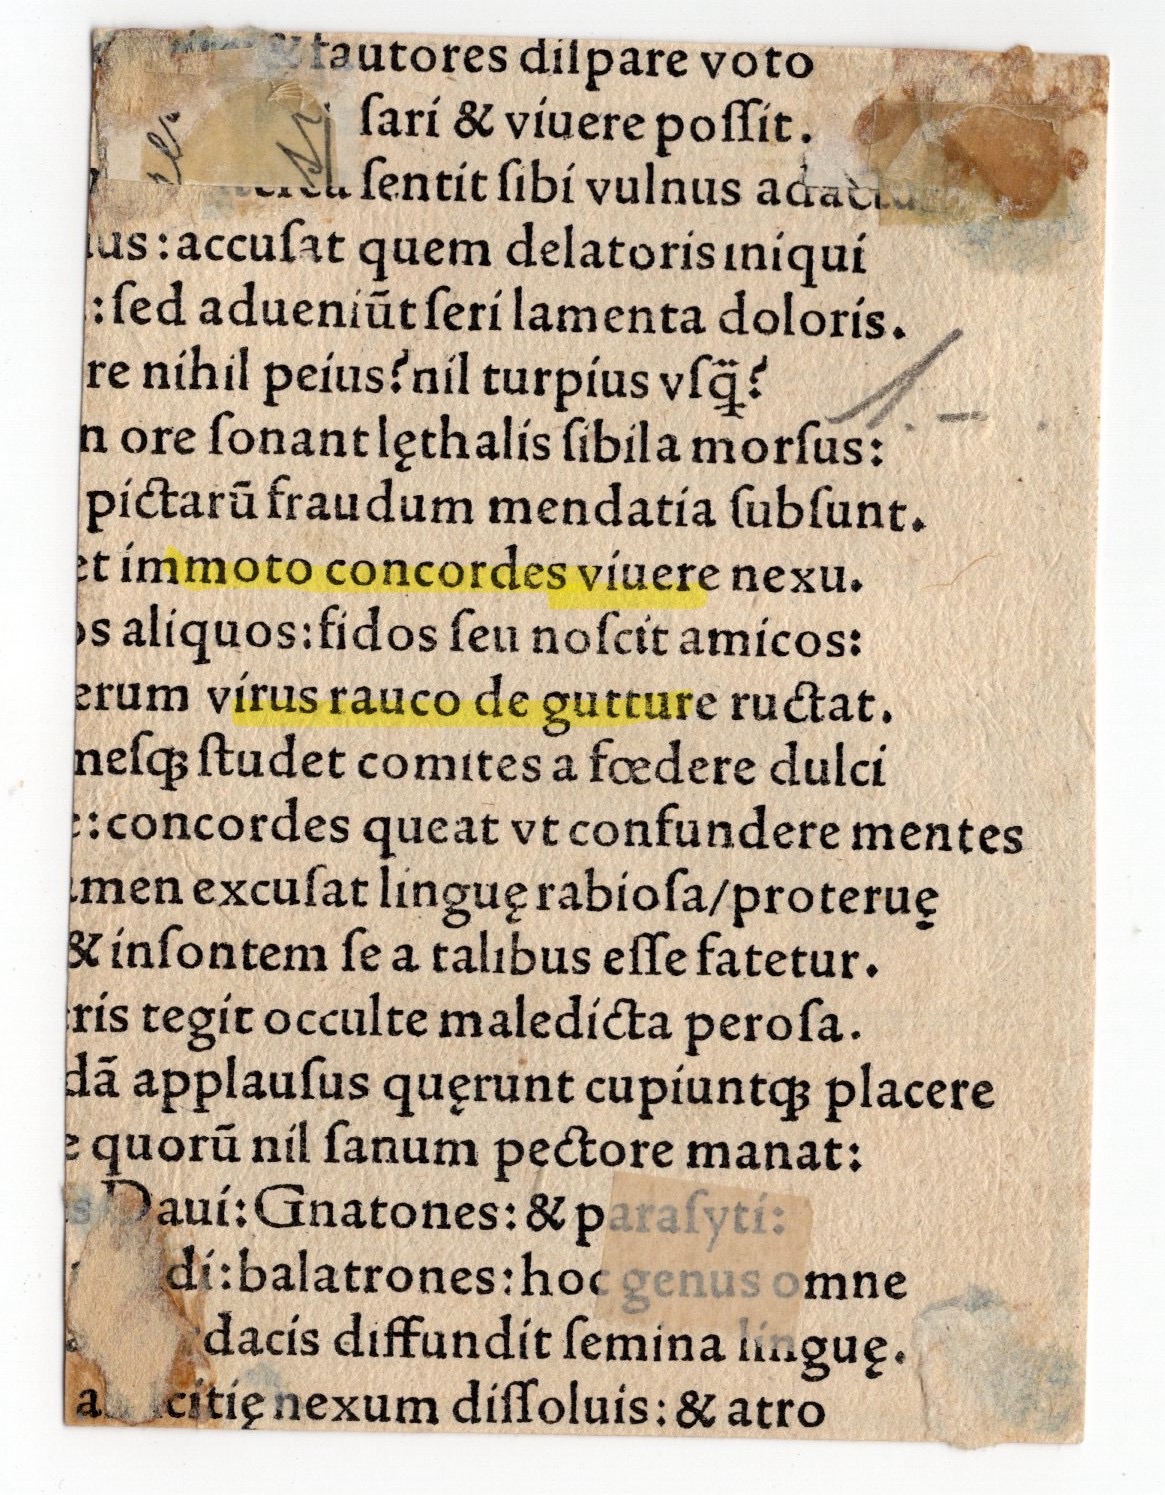 & fautores diſpare voto
ſari & viuere poſſit.
ſentit ſibi vulnus
us: accuſat quem delatoris iniqui
: ſed adueniūt ſeri lamenta doloris.
re nihil peius? nil turpius vſq̃?
n ore ſonant lęthalis ſibila morſus:
pictarū fraudum mendatia ſubſunt.
et immoto concordes viuere nexu.
os aliquos: fidos ſeu noſcit amicos:
erum virus rauco de gutture ructat.
neſqꝫ ſtudet comites a fœdere dulci
e: concordes queat vt confundere mentes
men excuſat linguę rabioſa/proteruę
& inſontem ſe a talibus eſſe fatetur.
ris tegit occulte maledicta peroſa.
dā applauſus quęrunt cupiuntqꝫ placere
e quorū nil ſanum pectore manat:
s Daui: Gnatones: & paraſyti:
di: balatrones: hoc genus omne
dacis diffundit ſemina linguę.
citię nexum diſſoluis: & atro